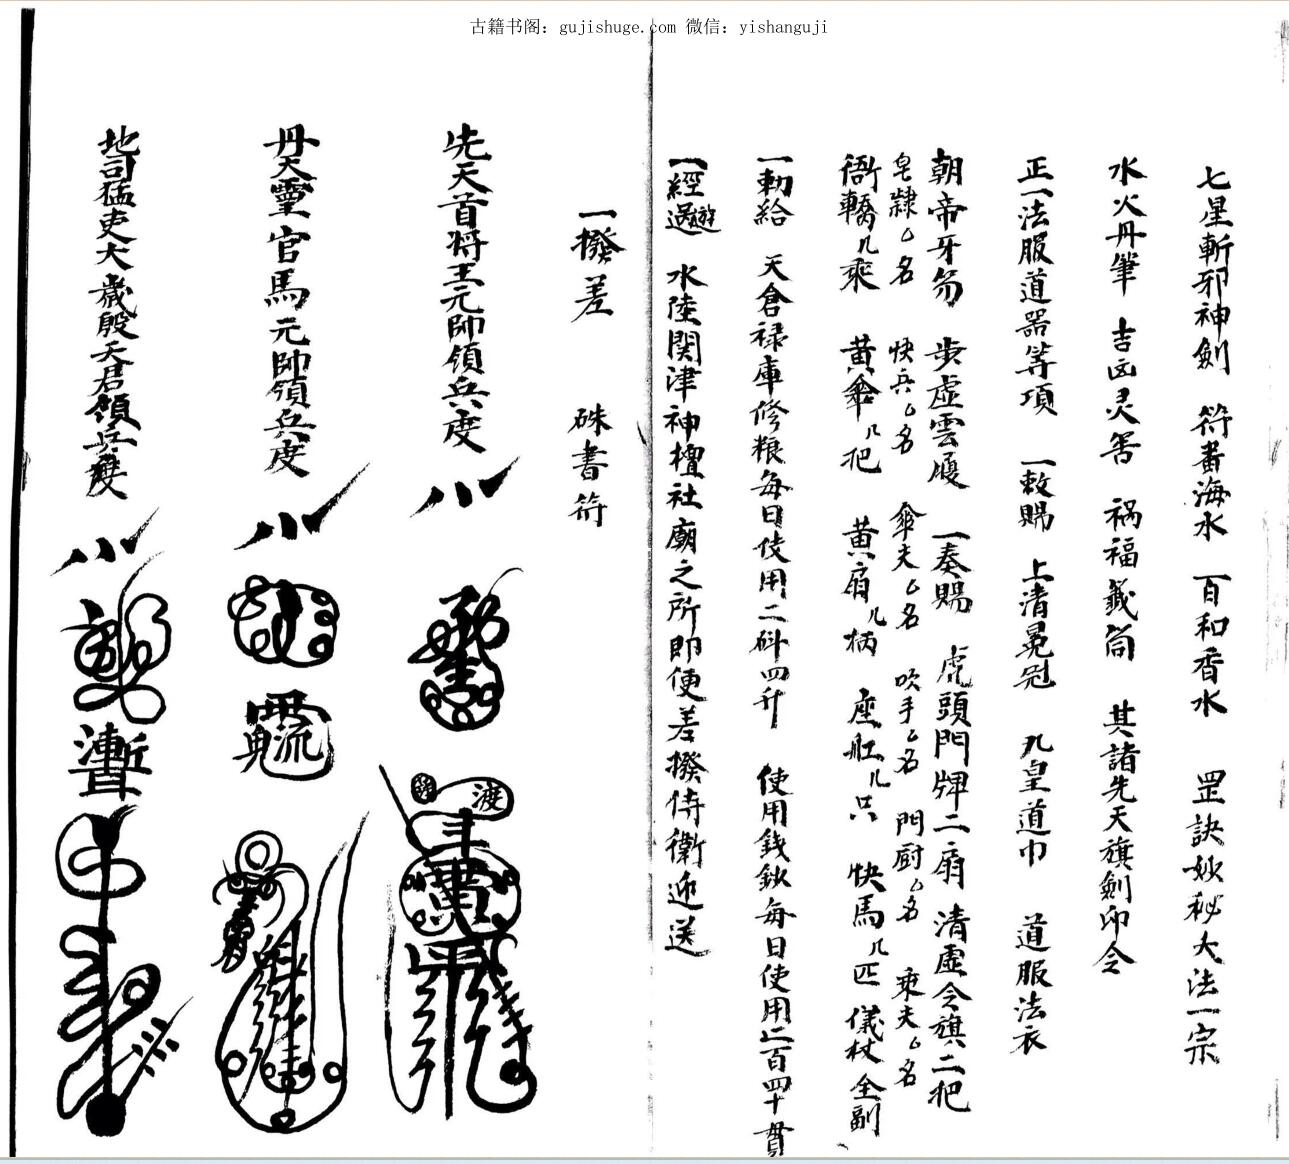 古籍书阁：gujishuge.com 微信：yishanguji
七星斬邪神劍 符畨海水 百和香水 罡訣妙秘大法一宗
水火丹筆 吉凶灵筶 禍福籖筒 其諸先天旗劍印令
正一法服道器等項 一敕賜 上清冕冠 九皇道巾 道服法衣
朝帝牙笏 步虛雲履 一奏賜 虎頭門牌二扇 清虛令旗二把
皂隸厶名 快兵厶名 傘夫厶名 吹手厶名 門厨厶名 乘夫厶名
衙轎几乘 黄傘几把 黄扇几柄 座舡几只 快馬几匹 儀杖全副
一勅給 天倉祿庫修粮每日使用二斛四升 使用錢鈔每日使用二百四十貫
一經過遊 水陸関津神檀社廟之所即便差撥侍衛迎送
一撥差 硃書符
先天首将王元帥領兵度
丹天靈官馬元帥領兵度
地司猛吏大歲殷天君領兵度